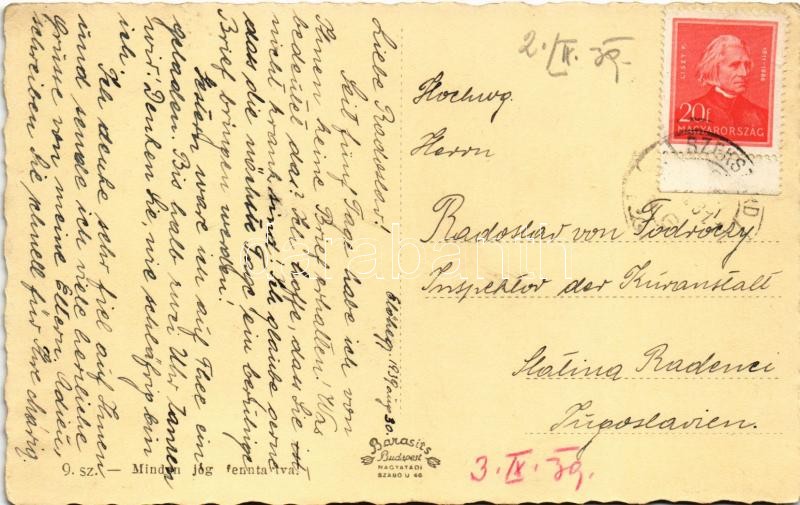 Előhegy, 1939 aug 30.
Liebe Radoslav!
Seit fünf Tage habe ich von
Ihnen keine Brief erhalten! Was
bedeutet das? Ich hoffe, dass Sie ist
nicht krank sind. Ich glaube gerne
das die nächste Tage ein beruhige
Brief bringen werden!
Gestern ware ich auf Thee ein
geladen. Bis halb zwei Uhr tanzen
wir! Denken Sie, wie schläfrig bin
ich!
Ich denke sehr fiel auf Ihnen
und sende ich viele herzliche
Grüsse von meine Eltern. Adieu,
schreiben Sie schnell für Ihre
9. sz. — Minden jog fenntartva!
Barasits
Budapest
NAGYATÁDI
SZABÓ U 46
2. IX. 39.
LISZT F.
1811-1886
20f
MAGYARORSZÁG
SZEKSZÁRD
Hochwg.
Herrn
Radoslav von Fodroczy
Inspektor der Kuranstalt
Slatina Radenci
Jugoslavien.
3. IX. 39.
darabanth